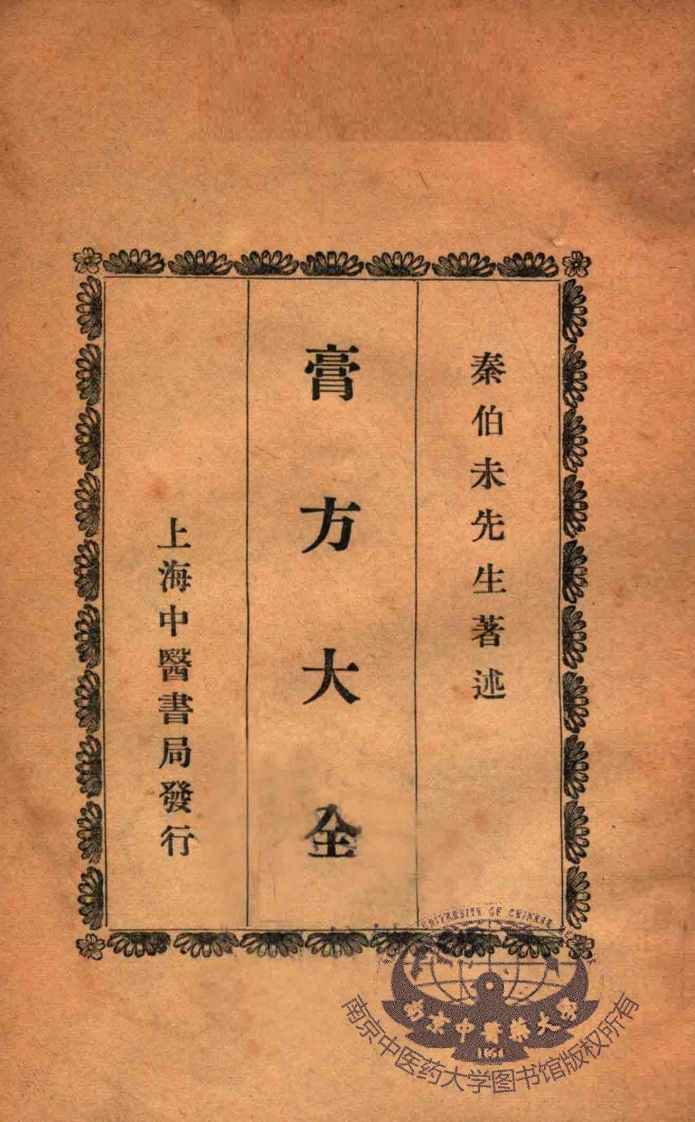 秦伯未先生著述
膏方大全
上海中醫書局發行
UNIVERSITY OF CHINESE
南京中醫藥大學
1954
南京中医药大学图书馆版权所有